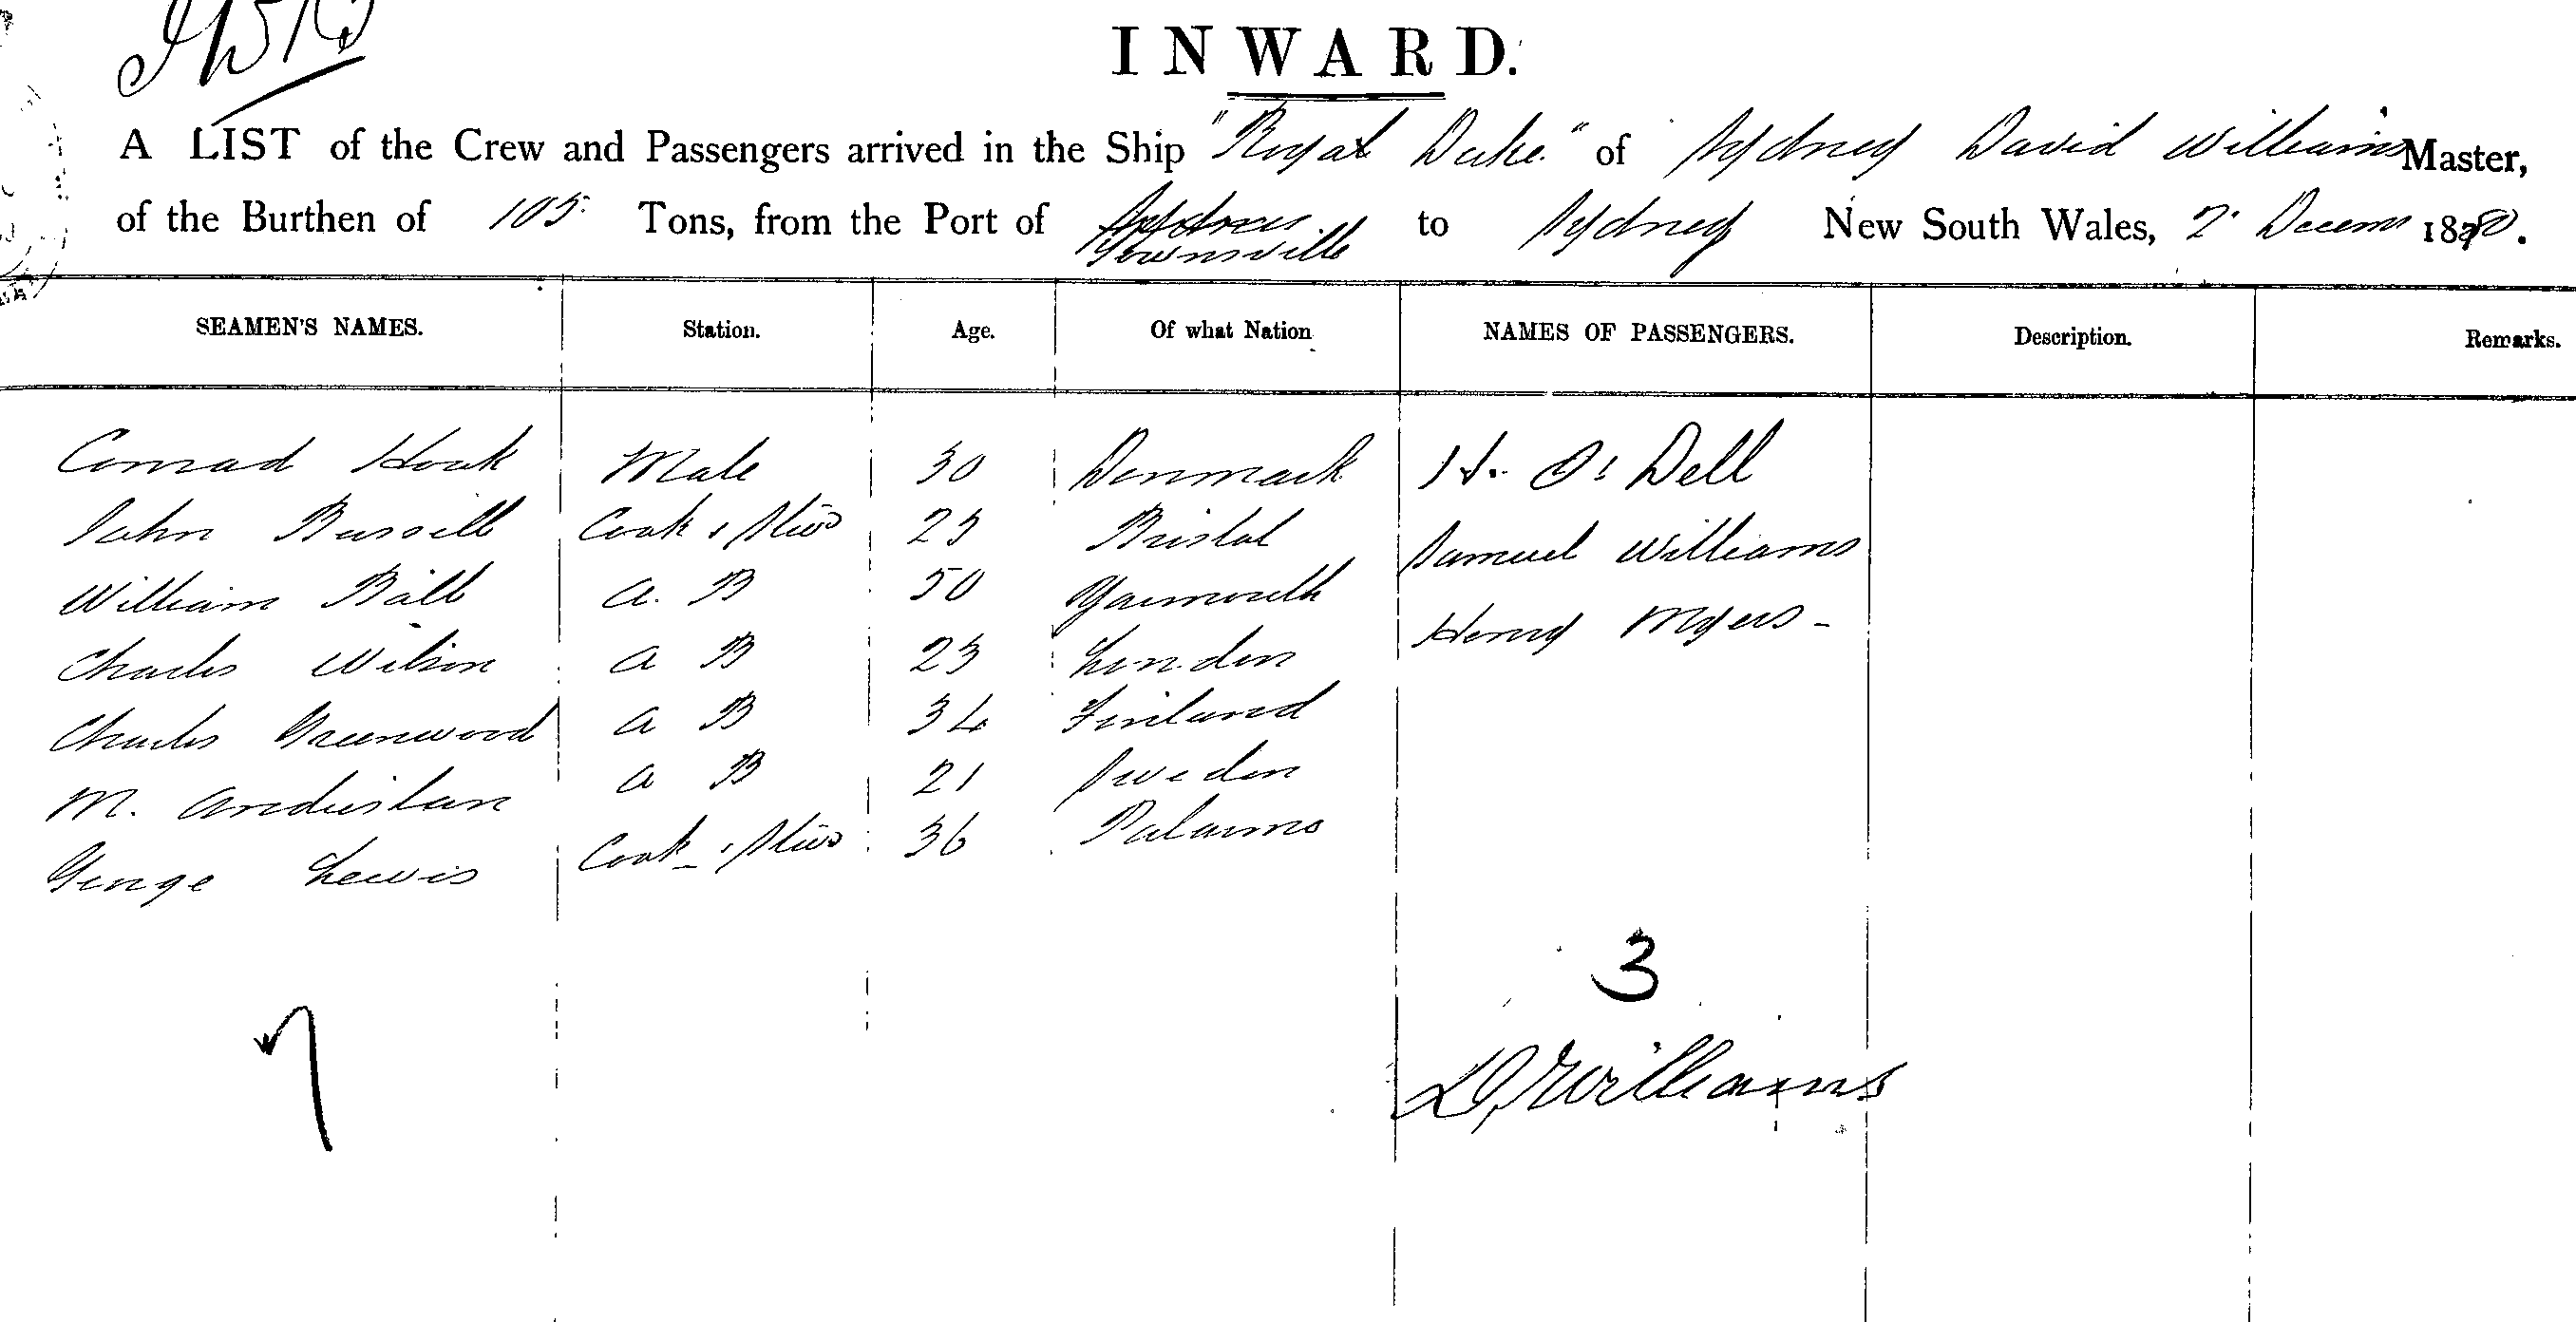 INWARD.
A LIST of the Crew and Passengers arrived in the Ship "Royal Duke." of Sydney David Williams Master,
of the Burthen of 105 Tons, from the Port of Townsville to Sydney New South Wales, 2 Decem 1880.
SEAMEN'S NAMES. Station. Age. Of what Nation NAMES OF PASSENGERS. Description. Remarks.
Conrad Mate 30 Denmark H. O' Dell
John Russell Cook & Stwd 25 Bristol Samuel Williams
William Ball A. B 50 Yarmouth Henry Myers -
Charles Wilson A B 23 London
Charles Greenwood A B 34 Finland
M. A B 21 Sweden
George Lewis Cook & Stwd 36
3
7
D. Williams